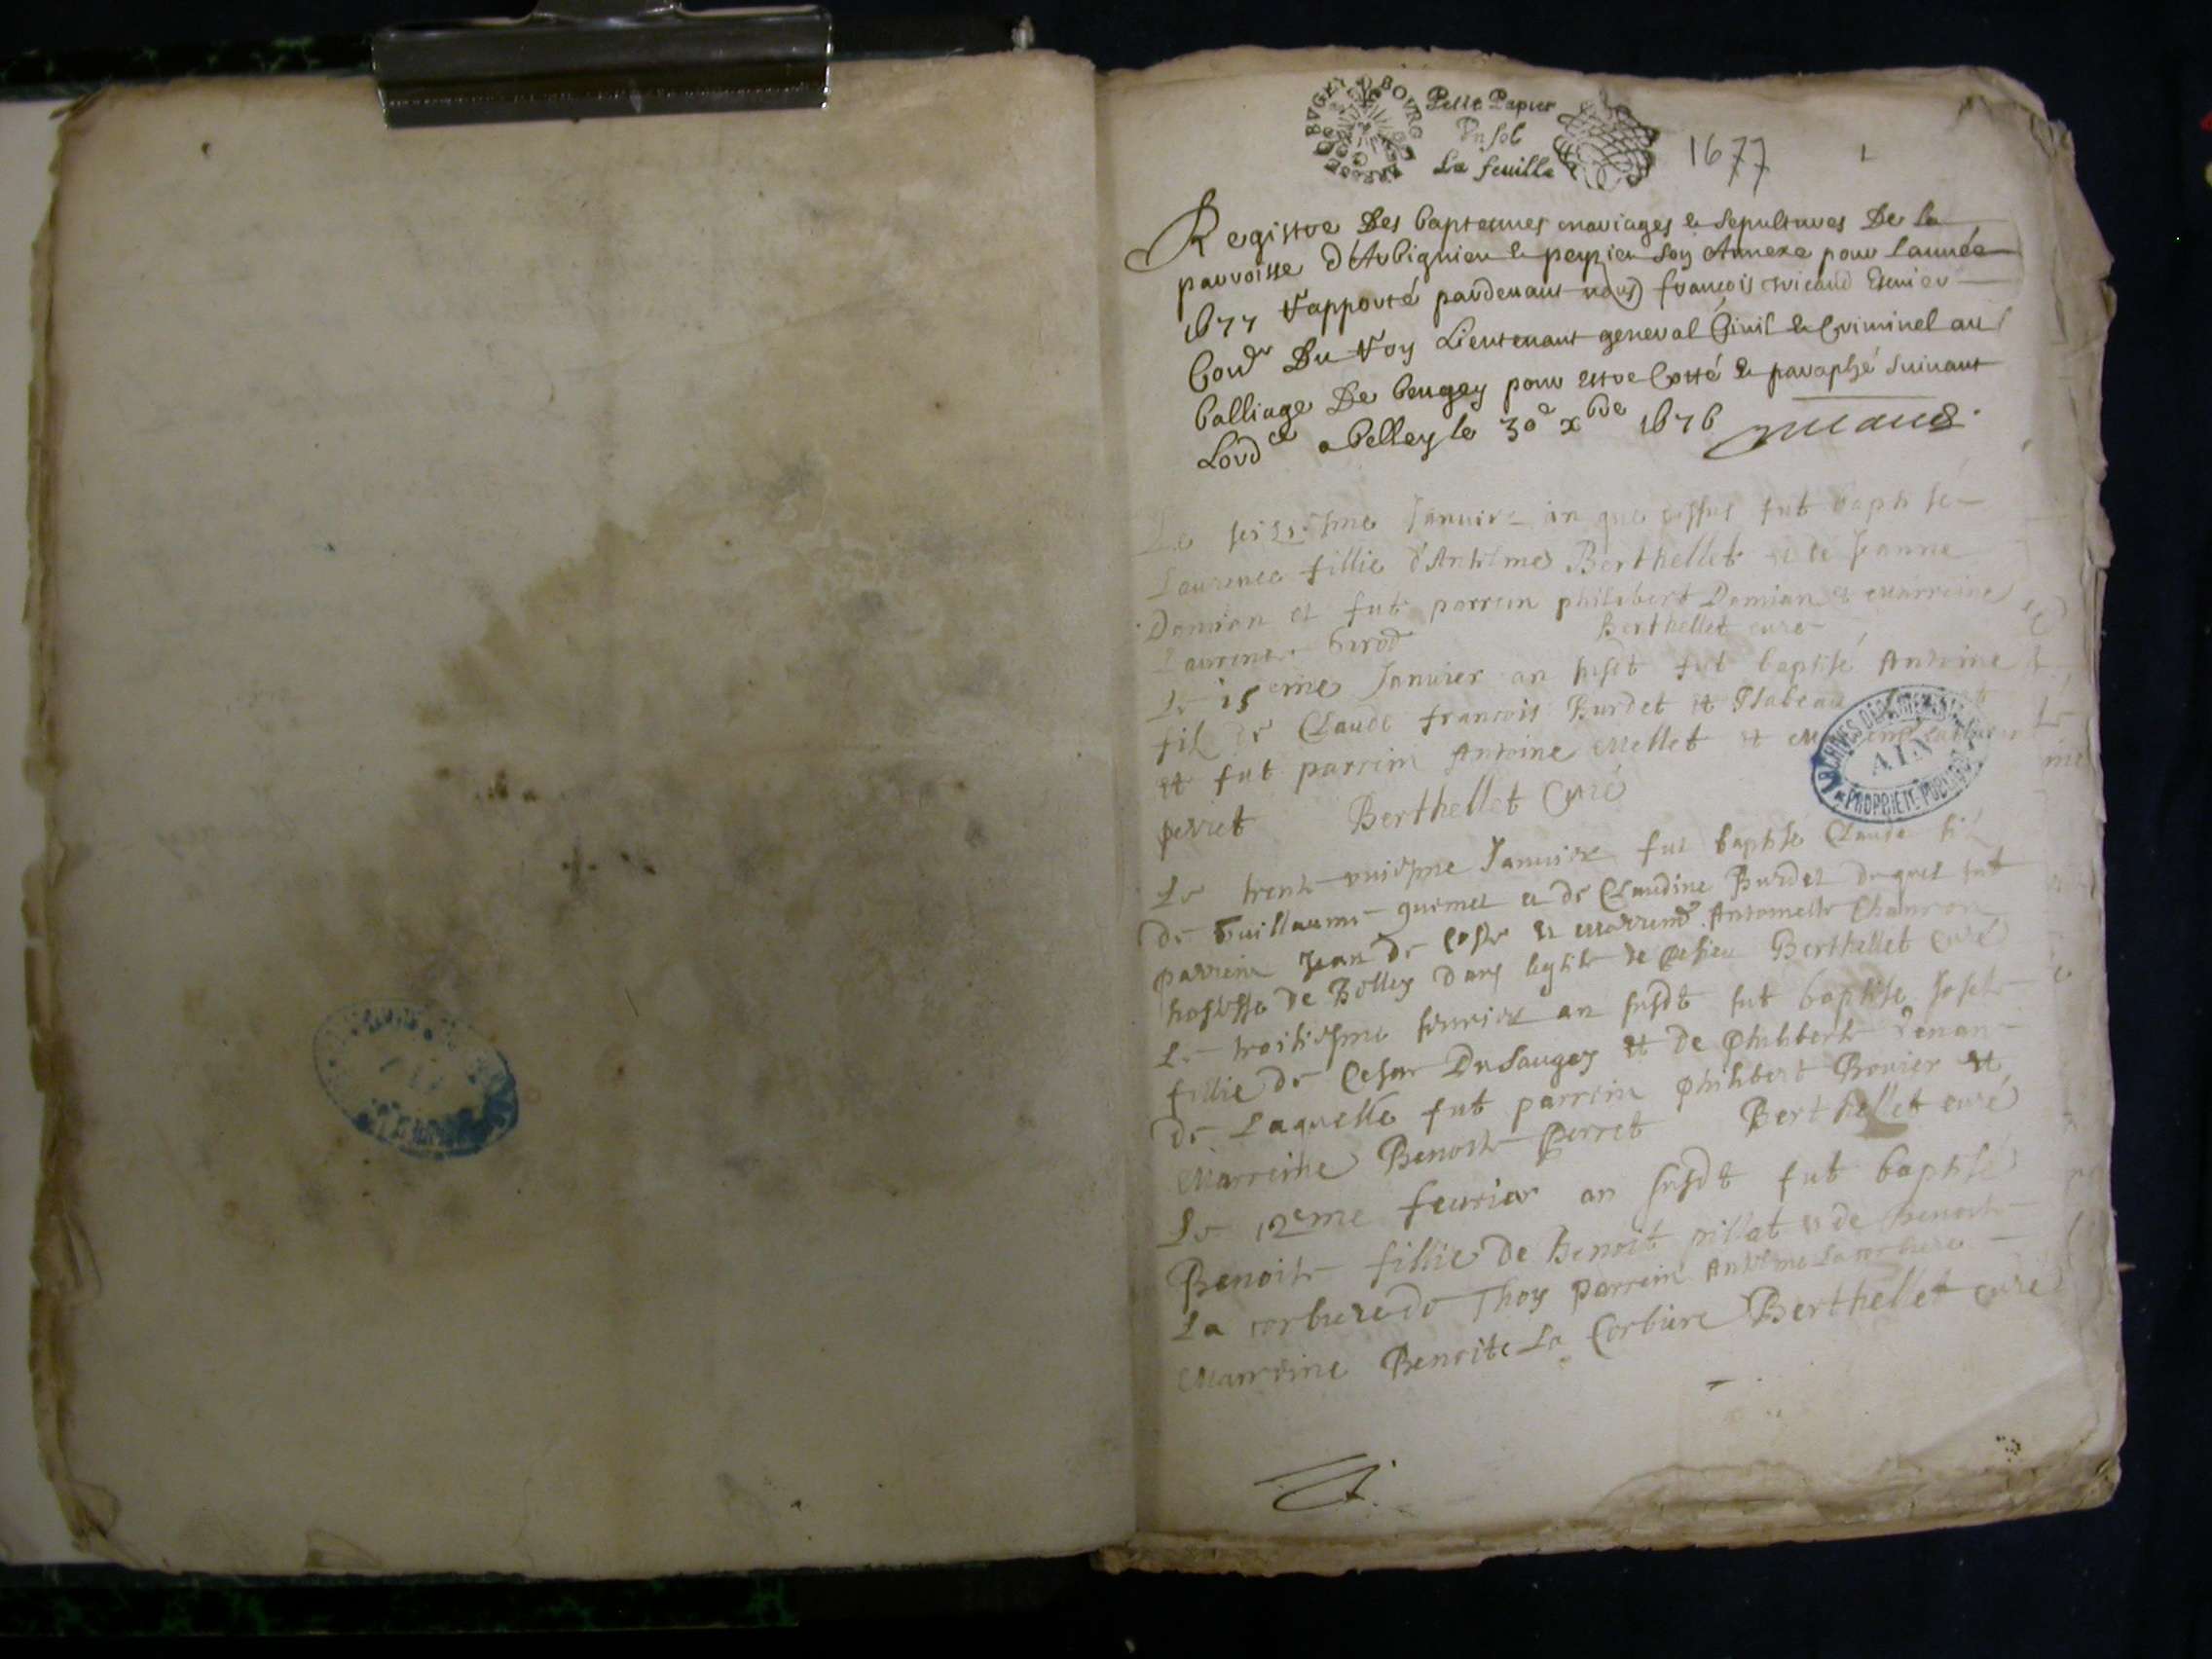 BVGEY BOVRG
Petit Papier
Vn sol
La feuille
1677
1
Registre Des baptesmes mariages & sepultures De la
parroisse d'Arbignieu & peyzieu son Annexe pour l'année
1677 rapporté pardeuant nous françois Escuier
Con.er Du Roy Lieutenant general Ciuil & Criminel au
balliage De beugey pour estre Cotté & paraphé suiuant
Lord.ce a belley le 30e xbre 1676
Le Januier an que dessus fut baptisé
Laurence fillie d'Anthelme Berthellet et de Jeanne
Damian et fut parrein philibert Damian et marreine
Laurence Berthellet curé
Le 15eme Januier an susdt fut baptisé Antoine
fil de Claude francois Burdet et Isabeau
et fut parrein Antoine Mellet et
perret Berthellet Curé
ARCHIVES DEPARTEMENTALES
AIN
PROPRIETE PUBLIQUE
Le trent uniesme Januier fut baptisé Claude fil
de Guillaume guemet et de Claudine Burdet duquel fut
parrein Jean de Coste et marreine Antoinette
hostesse de Belley dans leglise de Berthellet Curé
Le troisiesme feurier an susdt fut baptisée
fillie de Cesar DuSaugey et de Philiberte
de Laquelle fut parrein Philibert Bouier et
Marreine Benoite Perret Berthellet curé
Le 12eme feurier an susdt fut baptisé
Benoite fillie de Benoit pillat et de Benoite
La corbiere de Thoy parrein Antelme La corbiere
Marreine Benoite La Corbiere Berthellet curé